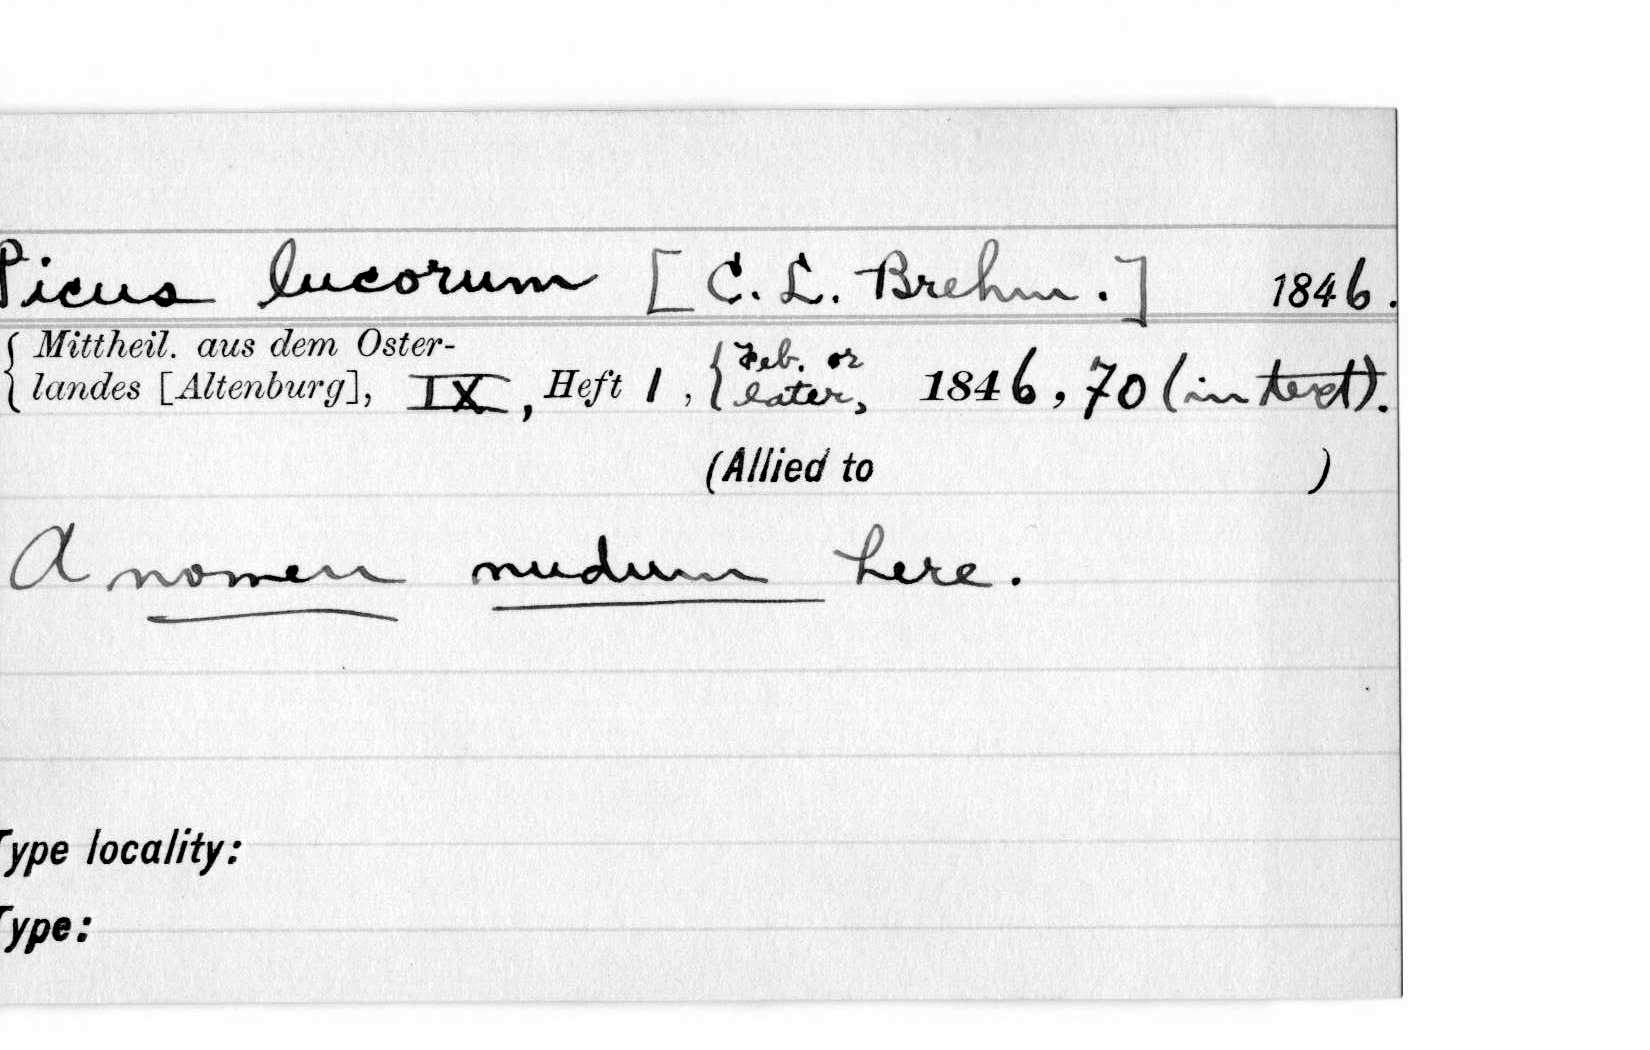 Picus lucorum [C. L. Brehm.] 1846.
Mittheil. aus dem Oster-
landes [Altenburg], IX, Heft 1, {Feb. or later, 1846, 70 (in text).
(Allied to )
A nomen nudum here.
Type locality:
Type: